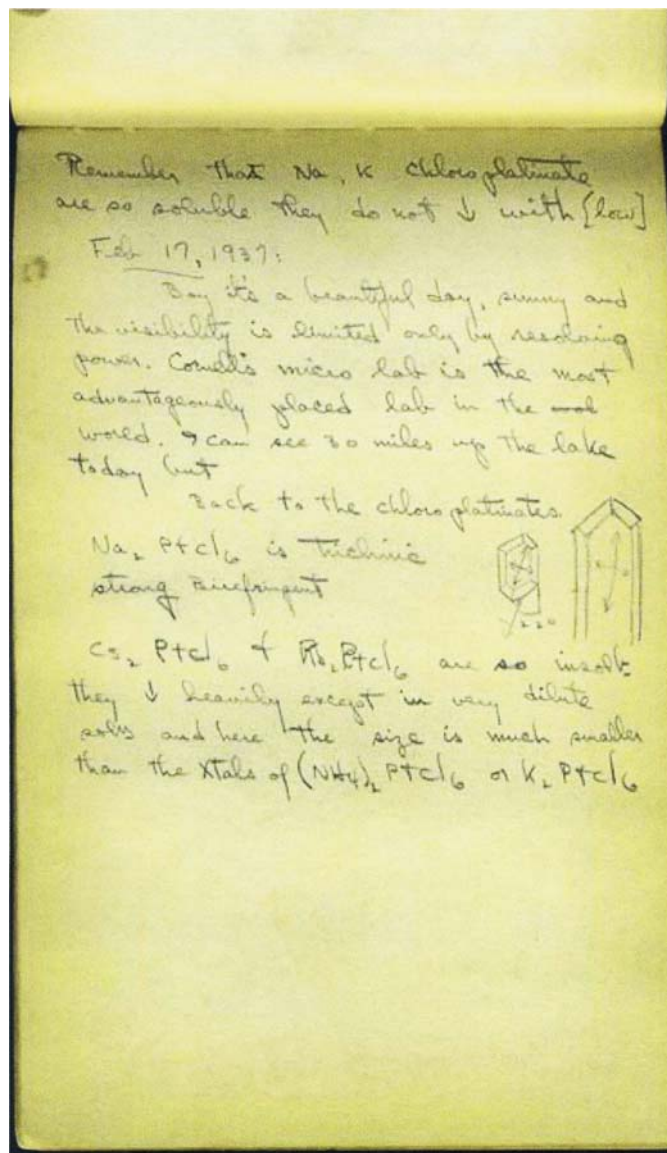 Remember that Na, K chloroplatinate
are so soluble they do not ↓ with [low]
Feb 17, 1937:
Boy it's a beautiful day, sunny and
the visibility is limited only by resolving
power. Cornell's micro lab is the most
advantageously placed lab in the
world. I can see 30 miles up the lake
today but
Back to the chloroplatinates.
Na₂ PtCl₆ is triclinic
strong birefringent
Cs₂ PtCl₆ & Rb₂PtCl₆ are so insolb.
they ↓ heavily except in very dilute
solns and here the size is much smaller
than the xtals of (NH₄)₂ PtCl₆ or K₂ PtCl₆